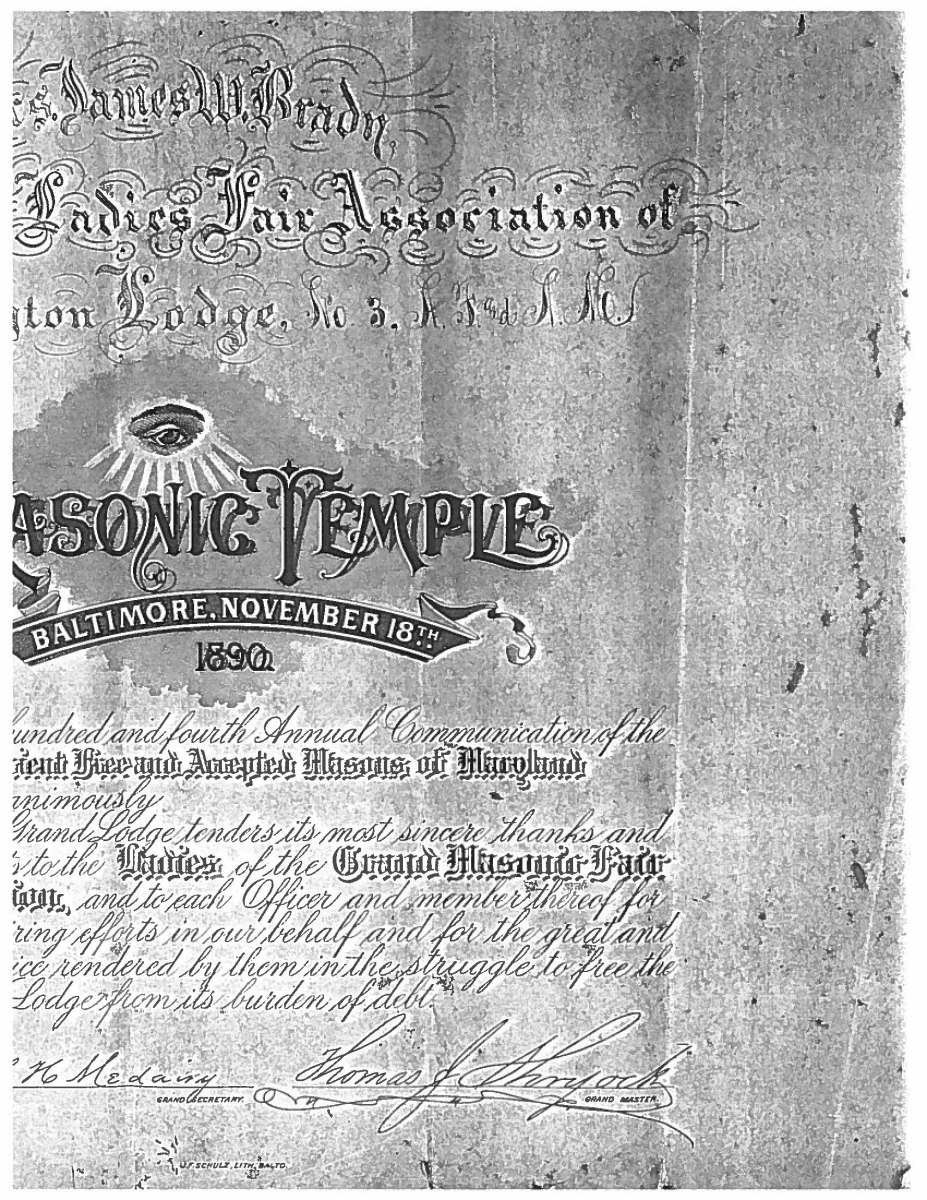 s. James W. Brady,
Ladies Fair Association of
gton Lodge, No 3, A. F. and A. M.
ASONIC TEMPLE
BALTIMORE, NOVEMBER 18TH
1890.
undred and fourth Annual Communication of the
ient Free and Accepted Masons, of Maryland
animously
Grand Lodge tenders its most sincere thanks and
s to the Ladies of the Grand Masonic Fair
ion, and to each Officer and member thereof for
ring efforts in our behalf and for the great and
ice rendered by them in the struggle to free the
Lodge from its burden of debt.
H Medairy Thomas J. Shryock
GRAND SECRETARY. GRAND MASTER.
J.F. SCHULZ, LITH, BALTO.